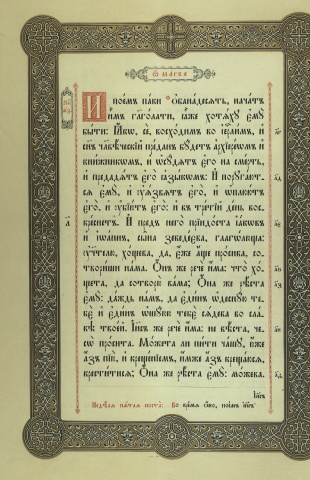 Ѿ МАРКА
И поемъ паки ѻбанадесѧть, начатъ
имъ глаголати, ꙗже хотѧхꙋ емꙋ
быти: Ꙗкѡ, се, восходимъ во іерⷭ҇лимъ, и
сн҃ъ чл҃вѣческїй преданъ бꙋдетъ архїереѡмъ и
книжникѡмъ, и ѡсꙋдѧтъ его на смерть,
и предадѧтъ его ꙗзыкѡмъ: И порꙋгают-
сѧ емꙋ, и ꙋѧзвѧтъ его, и ѡплюютъ
его, и ꙋбїютъ его: и въ третїй день вос-
креснетъ. И предъ него прїидоста іакѡвъ
и іѡаннъ, сына зеведеѡва, глаголюща:
ꙋчителю, хощева, да, еже аще просива, со-
твориши нама. Онъ же рече има: что хо-
щета, да сотворю вама; Она же рѣста
емꙋ: даждь намъ, да единъ ѡдеснꙋю те-
бе и единъ ѡшꙋюю тебе сѧдева во сла-
вѣ твоей. Іисъ же рече има: не вѣста, че-
сѡ просита. Можета ли пити чашꙋ, юже
азъ пїю, и крещенїемъ, имже азъ крещаюсѧ,
креститисѧ; Она же рѣста емꙋ: можева.
Іи҃съ
Недѣлѧ пѧтаѧ поста: Во времѧ ѻно, поѧтъ іи҃съ